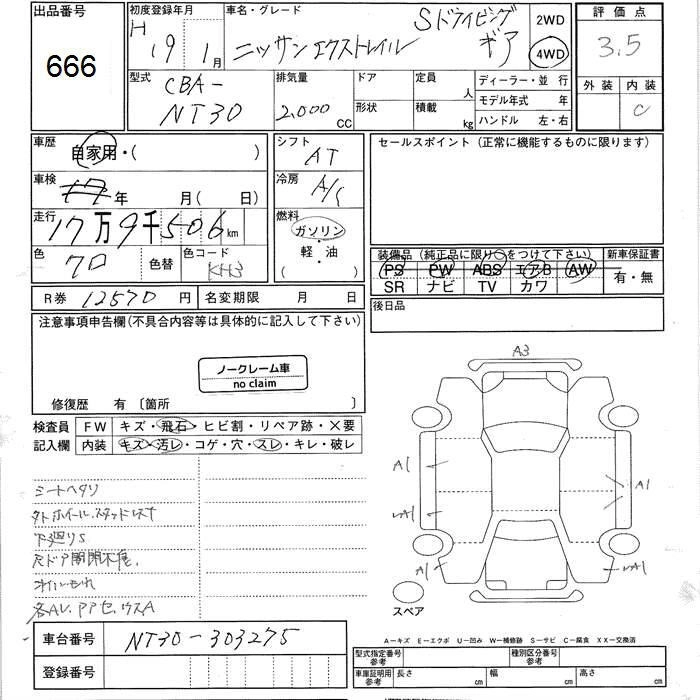 出品番号
666
初度登録年月
H 19年 1月
車名・グレード
ニッサン エクストレイル
Sドライビングギア
2WD
4WD
評価点
3.5
外装 内装
C
型式
CBA-
NT30
排気量
2.000
CC
ドア
形状
定員
人
積載
kg
ディーラー・並行
モデル年式 年
ハンドル 左・右
車歴
自家用・( )
車検
年 月( 日)
走行
17万9千506km
色
クロ
色替
色コード
KH3
シフト
AT
冷房
A/C
燃料
ガソリン
・
軽・油
( )
セールスポイント(正常に機能するものに限ります)
装備品(純正品に限り○をつけて下さい)
PS PW ABS エアB AW
SR ナビ TV カワ
新車保証書
有・無
R券 12570円
名変期限 月 日
後日品
注意事項申告欄(不具合内容等は具体的に記入して下さい)
ノークレーム車
no claim
修復歴 有〔箇所 〕
検査員
記入欄
FW キズ・飛石・ヒビ割・リペア跡・×要
内装 キズ・汚レ・コゲ・穴・スレ・キレ・破レ
シートヘタリ
下廻りS
オイルもれ
A3
A1
A1
A1
A1
A1
A1
スペア
A-キズ E-エクボ U-凹み W-補修跡 S-サビ C-腐食 XX-交換済
車台番号
NT30-303275
登録番号
型式指定番号
参考
種別区分番号
参考
車庫証明用
参考
長さ cm
幅 cm
高さ cm